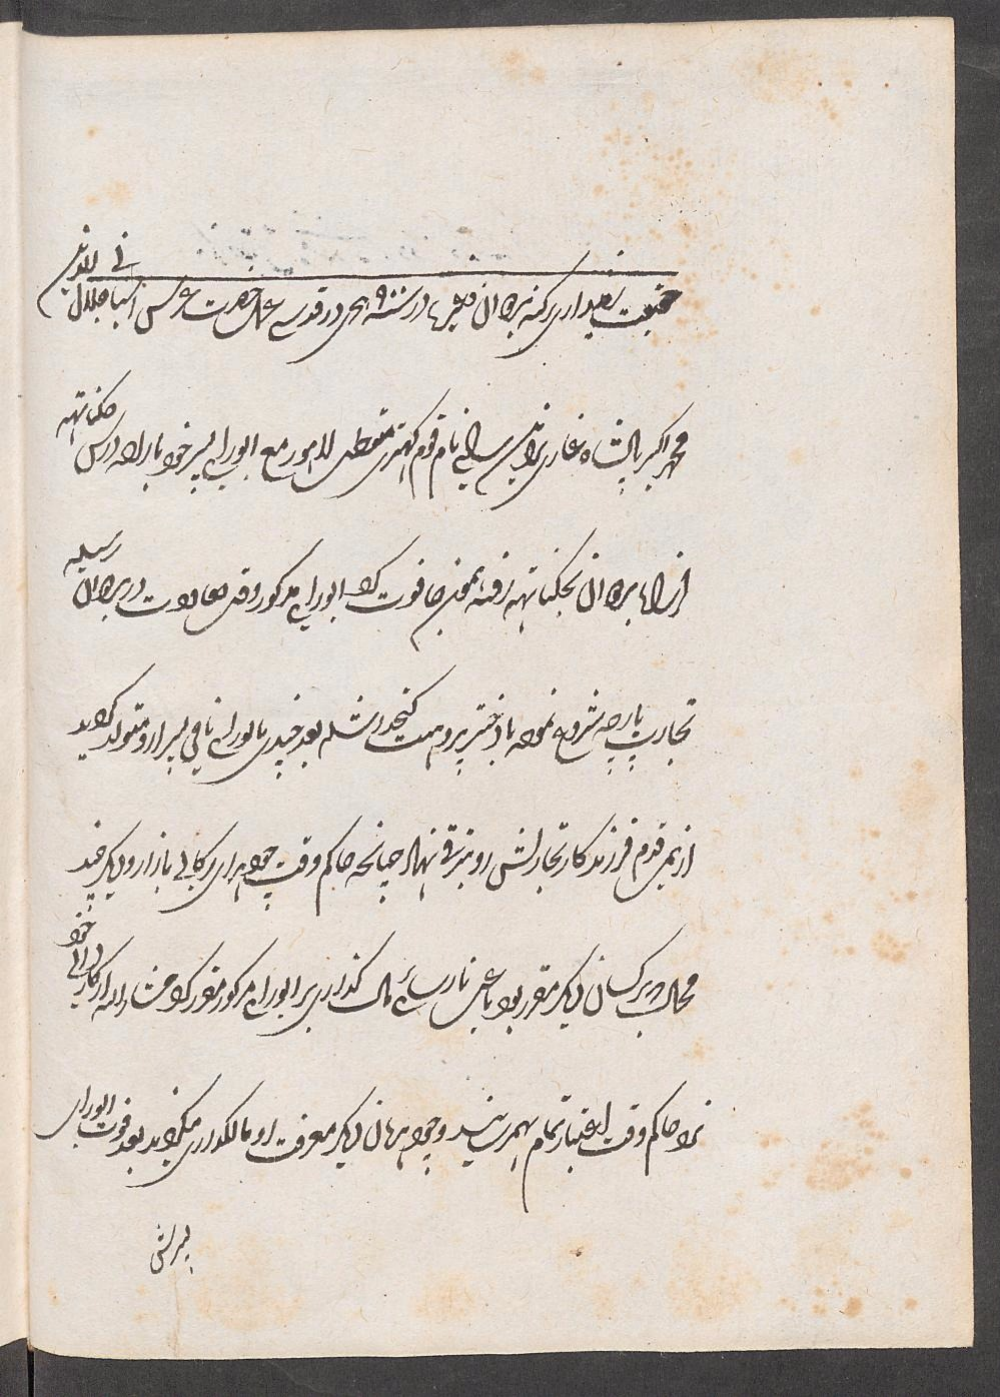 حقیقت زمینداری پرگنه بردوان وغیرها در سنه ۹۰۰ هجری در قدوسے عہد حضرت عرش آشیانی جلال الدین
محمد اکبر پادشاه غازی سالے نام قوم کهتری متوطن لاهور مع ابورای پسر خود باراده درس جکناتهه
از راه بردوان بجکناتهه رفته همانجا فوت کرد ابورای مذکور وقت معاودت در بردوان رسیده
تجارت پارچه شروع نموده با دختر کتخدا شد بعد چندی بابورای نامی پسر از او متولد گردید
از یمن قدم فرزند کار تجارتش رو بترقی نهاد چنانچه حاکم وقت چودهرای رکابی بازار و دیگر چند
محال که بر کسان دیگر مقرر بود باعث نارسائی مال گذاری بر ابورای مذکور مقرر کرد مشارالیه از کاردانی خود
نزد حاکم وقت اعتبار تمام بهم رسانید و چودهریان دیگر معرفت او مالگذاری میکردند بعد فوت ابورای
پسرش